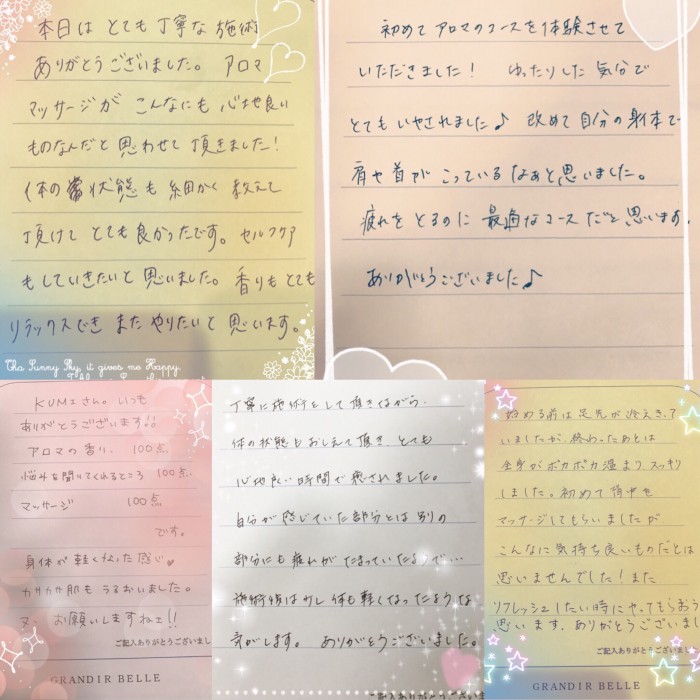 本日は とても 丁寧な 施術
ありがとうございました。 アロマ
マッサージが こんなにも 心地良い
ものなんだと 思わせて 頂きました!
体の 状態も 細かく 教えて
頂けて とても 良かったです。セルフケア
もしていきたいと 思いました。香りも とても
リラックスでき また やりたいと 思います。
Tha Sunny Sky, it gives me Happy.
初めて アロマのコースを 体験させて
いただきました! ゆったりした 気分で
とても いやされました♪ 改めて 自分の 身体で
肩や 首が こっている なぁと 思いました。
疲れを とるのに 最適な コース だと 思います。
ありがとうございました♪
KUMIさん。いつも
ありがとうございます!!
アロマの香り。 100点
悩みを聞いてくれるところ 100点
マッサージ 100点
です。
身体が 軽くなった感じ♥
カサカサ肌も うるおいました。
又、お願いしますネェ!!
ご記入ありがとうございまし
GRANDIR BELLE
丁寧に 施術をして 頂きながら、
体の 状態も おしえて 頂き、とても
心地良い 時間で 癒されました。
自分が 感じていた 部分とは 別の
部分にも 疲れが たまっていたようで…
施術後は 少し 体も 軽くなったような
気がします。 ありがとうございました。
ご記入ありがとうございま
始める前は 足先が 冷えきって
いましたが、終わったあとは
全身が ポカポカ 温まり スッキリ
しました。初めて 背中を
マッサージしてもらいましたが
こんなに 気持ち良いものだとは
思いませんでした! また
リフレッシュしたい時に やってもらおう
思います。ありがとうございまし
ご記入ありがとうございまし
GRANDIR BELLE